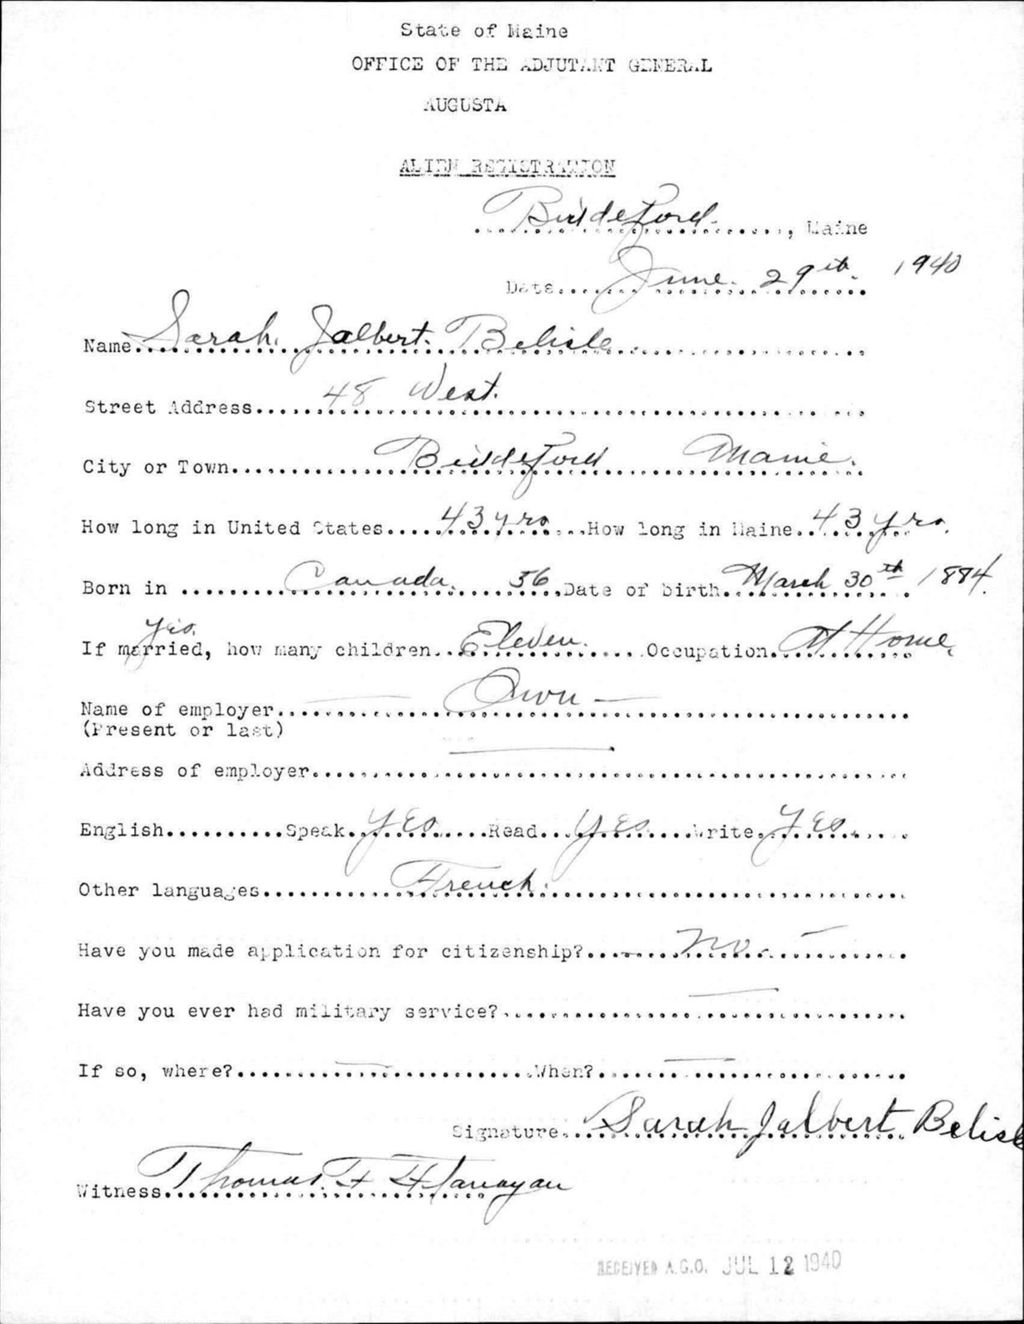 State of Maine
OFFICE OF THE ADJUTANT GENERAL
AUGUSTA
ALIEN REGISTRATION
Biddeford, Maine
Date June 29th 1940
Name Sarah Jalbert Belisle
Street Address 48 West.
City or Town Biddeford Maine.
How long in United States 43 yrs How long in Maine 43 yrs.
Born in Canada. 56 Date of birth March 30th 1884.
yes.
If married, how many children Eleven. Occupation At Home.
Name of employer Own —
(Present or last)
Address of employer
English Speak Yes Read Yes Write Yes.
Other languages French.
Have you made application for citizenship? — No. —
Have you ever had military service? —
If so, where? — When? —
Signature Sarah Jalbert Belisle
Witness Thomas F Flanagan
RECEIVED A.G.O. JUL 12 1940